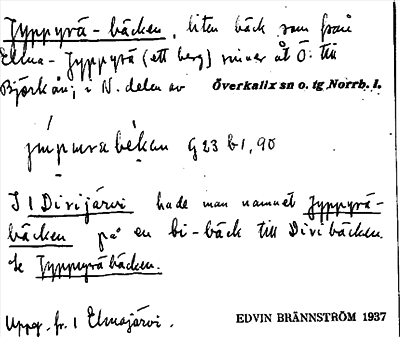 Jyppyrä-bäcken, liten bäck som från
Elma-Jyppyrä (ett berg) rinner åt Ö. till
Björkån, i N. delen av Överkalix sn o. tg Norrb. l.
G23 b1, 90
I 1 Divijärvi hade man namnet Jyppyrä-
bäcken på en bi-bäck till Divibäcken.
Se Jyppyräbäcken.
Uppg. fr. 1 Elmajärvi.
EDVIN BRÄNNSTRÖM 1937